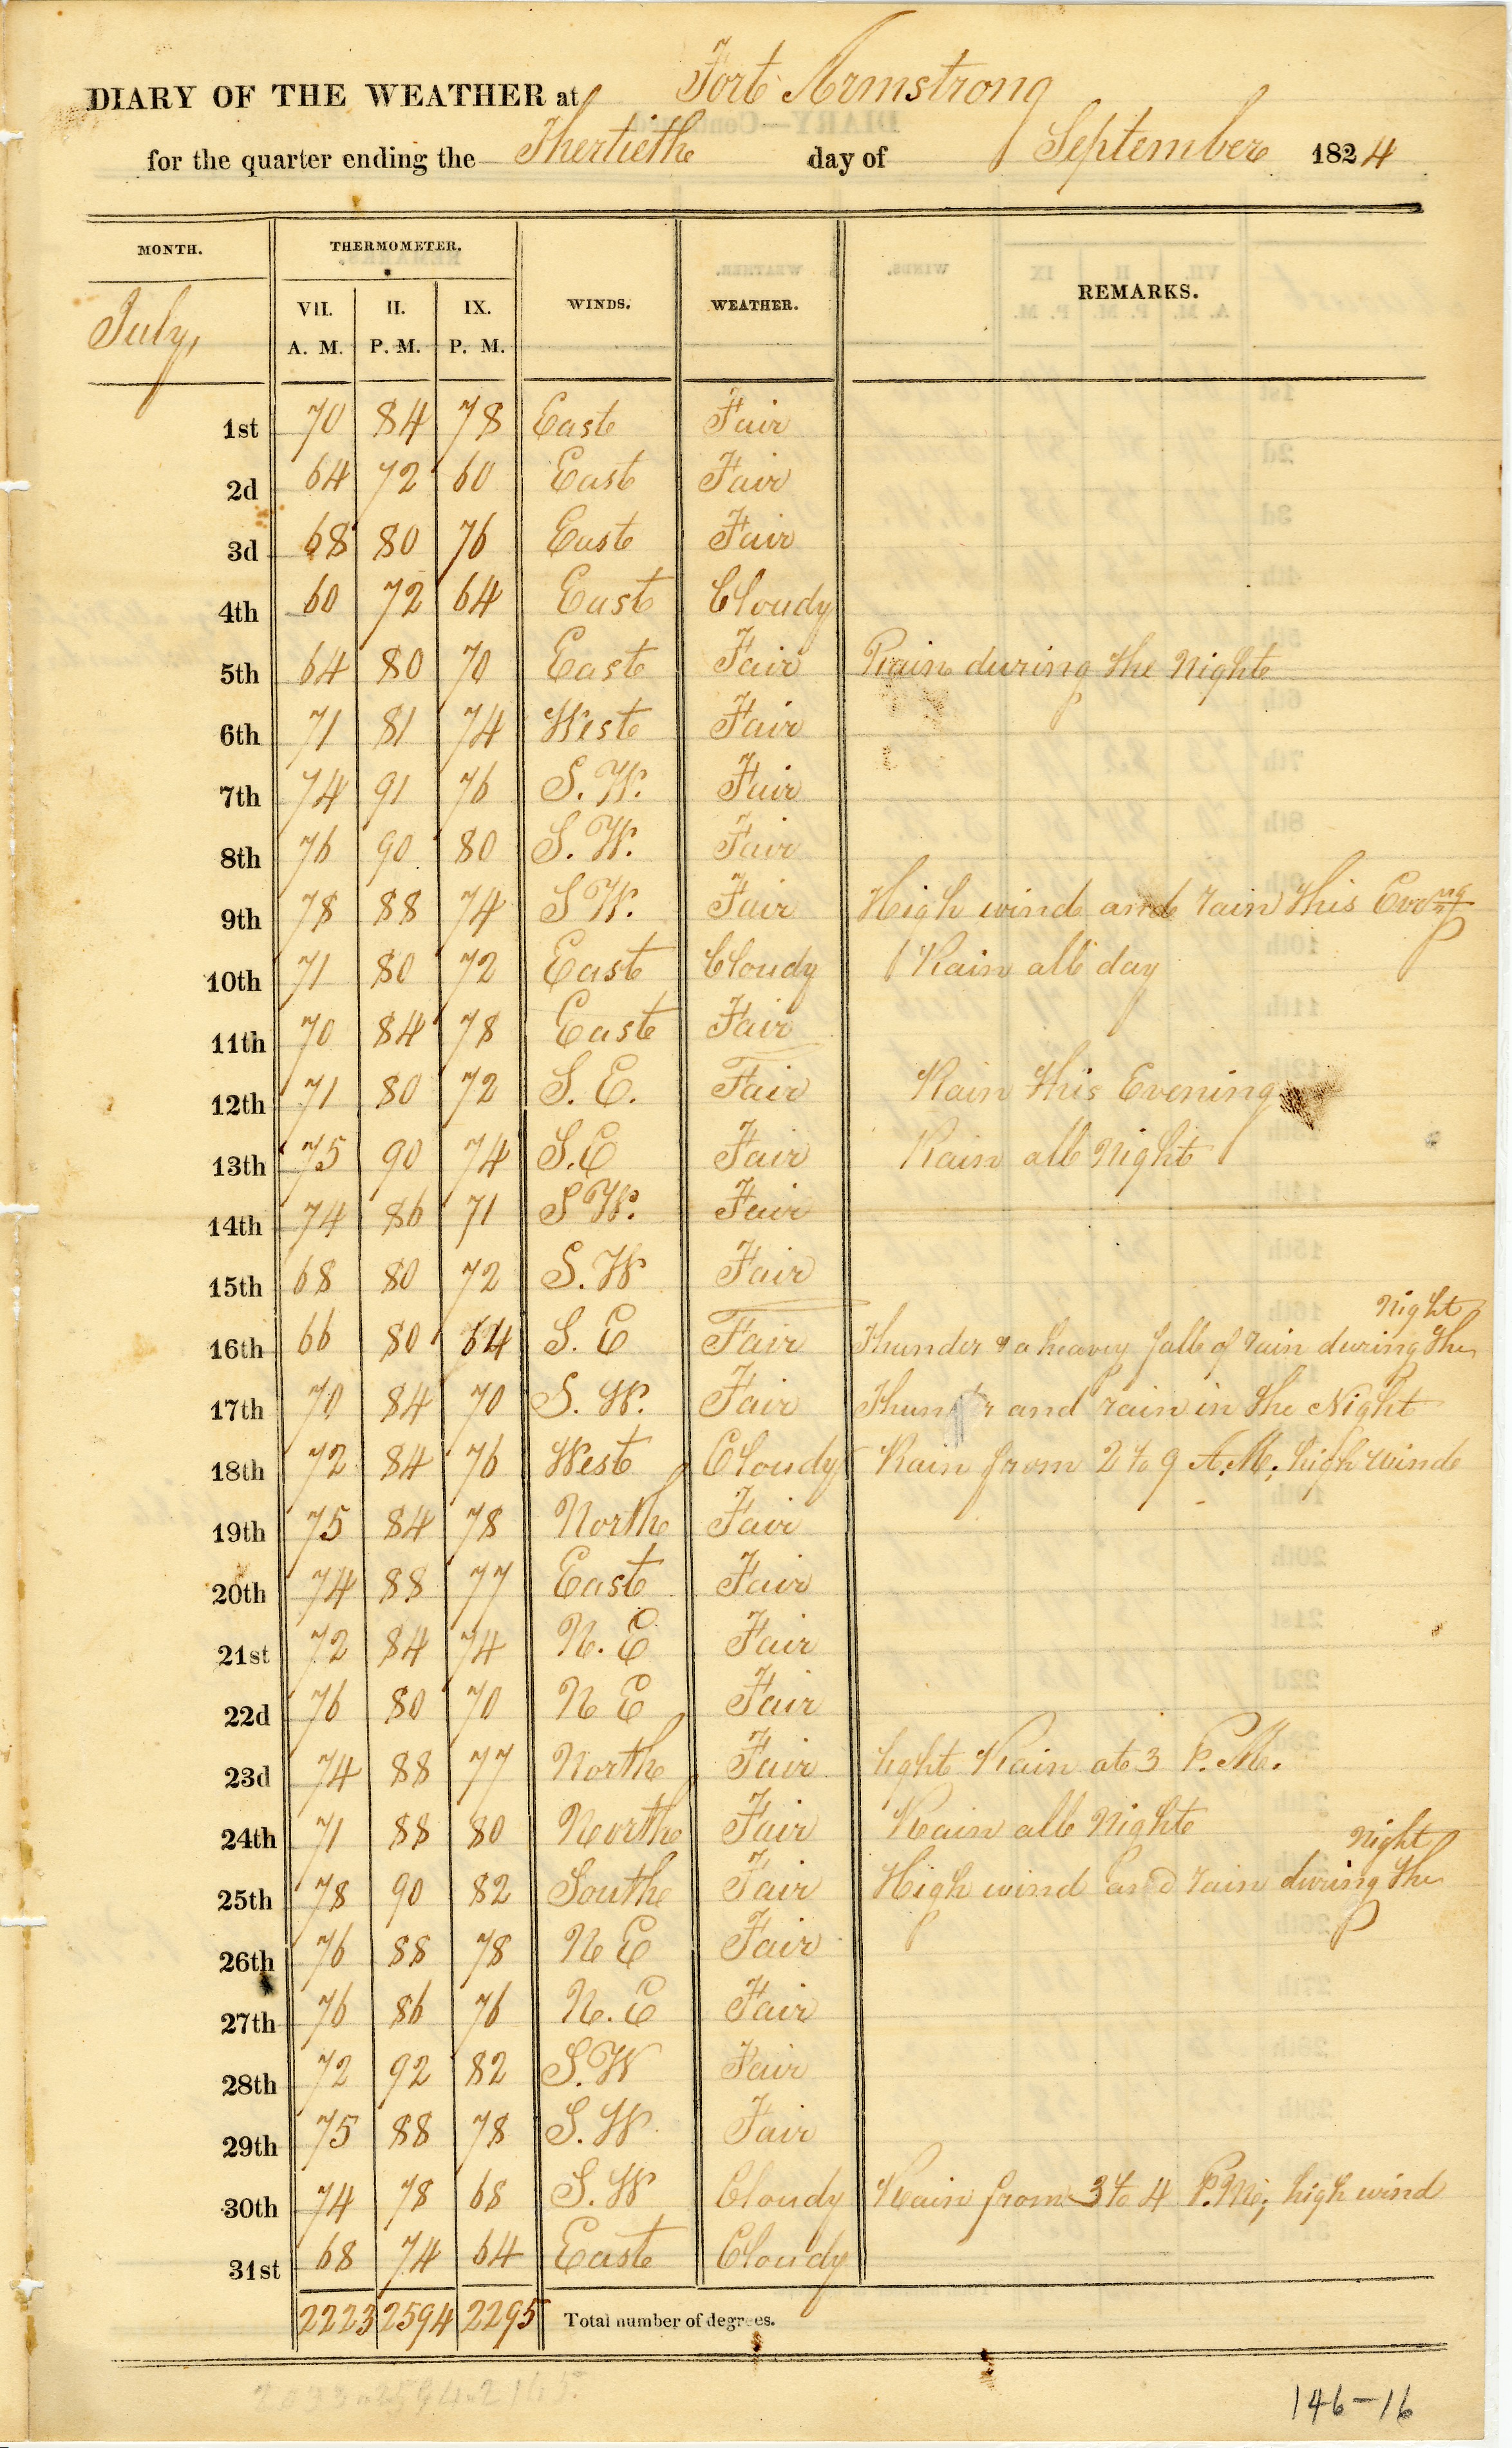 DIARY OF THE WEATHER at Fort Armstrong
for the quarter ending the Thertieth day of September 1824
MONTH. THERMOMETER. WINDS. WEATHER. REMARKS.
July, VII. A. M. II. P. M. IX. P. M.
1st 70 84 78 East Fair
2d 64 72 60 East Fair
3d 68 80 76 East Fair
4th 60 72 64 East Cloudy
5th 64 80 70 East Fair Rain during the Night
6th 71 81 74 West Fair
7th 74 91 76 S. W. Fair
8th 76 90 80 S. W. Fair
9th 78 88 74 S W. Fair High wind and rain this Eveng
10th 71 80 72 East Cloudy Rain all day
11th 70 84 78 East Fair
12th 71 80 72 S. E. Fair Rain this Evening
13th 75 90 74 S. E Fair Rain all Night
14th 74 86 71 S W. Fair
15th 68 80 72 S. W Fair
16th 66 80 64 S. E Fair Thunder & a heavy fall of rain during the night
17th 70 84 70 S. W. Fair Thunder and rain in the Night
18th 72 84 76 West Cloudy Rain from 2 to 9 A.M; high wind
19th 75 84 78 North Fair
20th 74 88 77 East Fair
21st 72 84 74 N. E Fair
22d 76 80 70 N E Fair
23d 74 88 77 North Fair light Rain at 3 P.M.
24th 71 88 80 North Fair Rain all Night
25th 78 90 82 South Fair High wind and rain during the night
26th 76 88 78 N E Fair
27th 76 86 76 N. E Fair
28th 72 92 82 S. W Fair
29th 75 88 78 S. W Fair
30th 74 78 68 S. W Cloudy Rain from 3 to 4 P.M; high wind
31st 68 74 64 East Cloudy
2223 2594 2295 Total number of degrees.
146-16